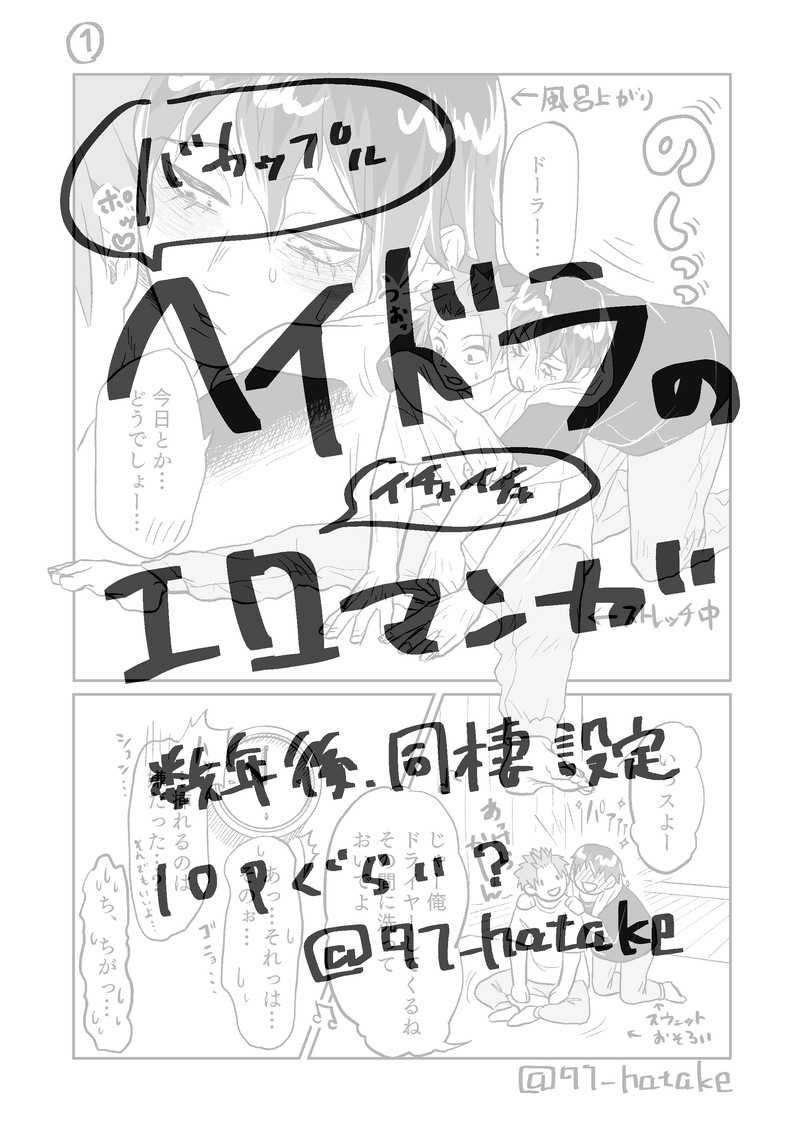 ①
バカップル
ヘイドラの
イチャイチャ
エロマンガ
数年後.同棲設定
10Pぐらい?
@97_hatake
←風呂上がり
のしっ
ドーラー…
ポッ♡
うおっ
今日とか…
どうでしょー…
←ストレッチ中
いっスよー
パァァ
じゃー俺
ドライヤーしてくるね
その間に洗って
おいでよ
←スウェット
おそろい
あっ…それっは…
そのぉ…
ゴニョ…
ション…
いち、ちがっ…
@97_hatake